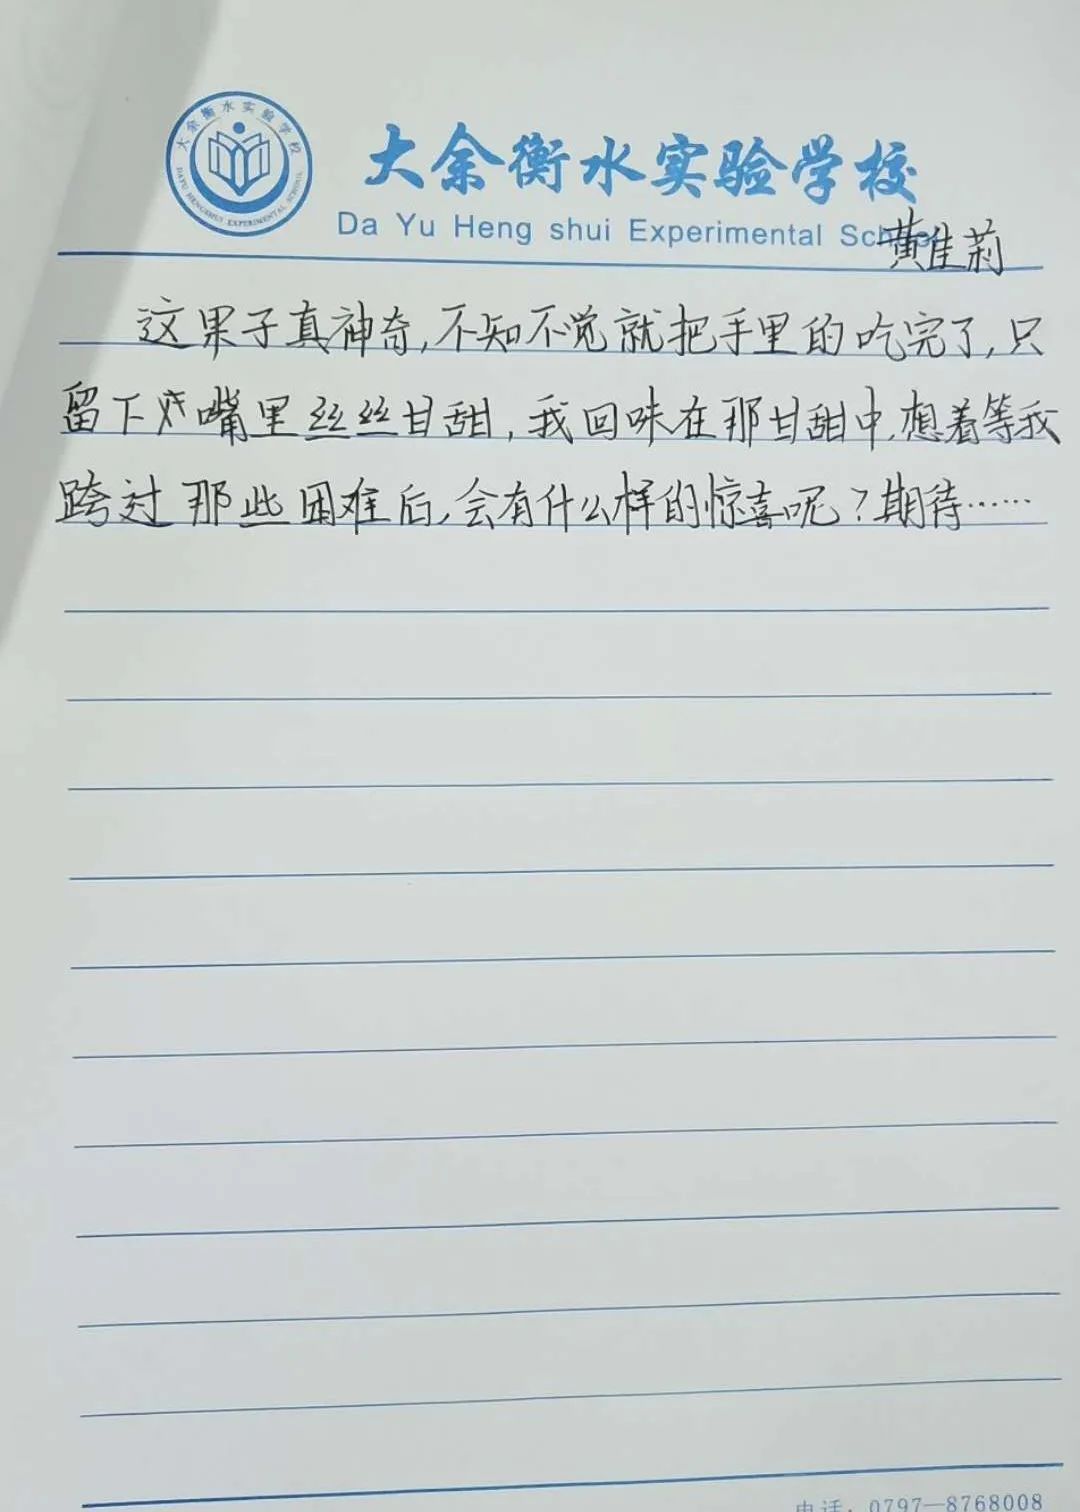 大余衡水实验学校
DAYU HENGSHUI EXPERIMENTAL SCHOOL
大余衡水实验学校
Da Yu Heng shui Experimental Sc
黄佳莉
这果子真神奇,不知不觉就把手里的吃完了,只
留下嘴里丝丝甘甜,我回味在那甘甜中,想着等我
跨过那些困难后,会有什么样的惊喜呢?期待……
电话:0797—8768008